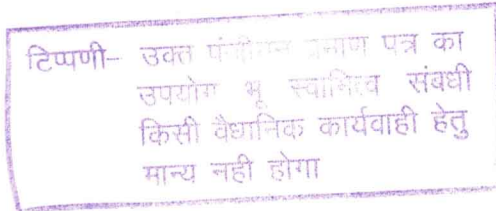 टिप्पणी– उक्त पंजीयन प्रमाण पत्र का
उपयोग भू स्वामित्व संबधी
किसी वैधानिक कार्यवाही हेतु
मान्य नही होगा